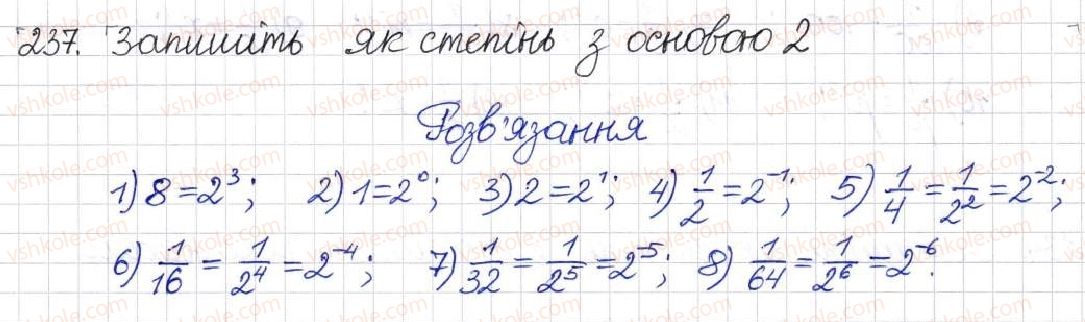 237. Запишіть як степінь з основою 2
Розв'язання
1) 8 = 2³; 2) 1 = 2⁰; 3) 2 = 2¹; 4) 1/2 = 2⁻¹; 5) 1/4 = 1/2² = 2⁻²;
6) 1/16 = 1/2⁴ = 2⁻⁴; 7) 1/32 = 1/2⁵ = 2⁻⁵; 8) 1/64 = 1/2⁶ = 2⁻⁶.
vshkole.com